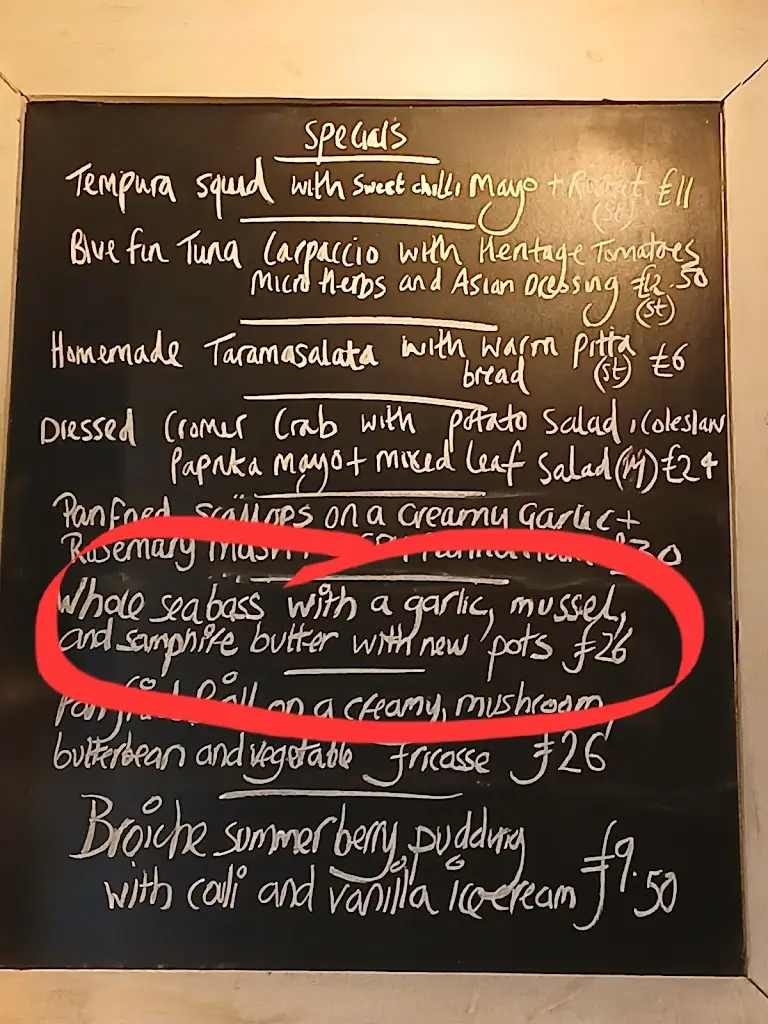 Specials
Tempura squid with sweet chilli Mayo + Rocket £11
(st)
Blue fin Tuna Carpaccio with Heritage Tomatoes
Micro Herbs and Asian Dressing £12.50
(st)
Homemade Taramasalata with warm Pitta
bread (st) £6
Dressed Cromer Crab with potato Salad, Coleslaw
Paprika Mayo + mixed leaf Salad (M) £24
Pan fried Scallops on a Creamy Garlic +
Rosemary £30
Whole seabass with a garlic, mussel,
and samphire butter with new pots £26
Pan fried on a creamy, mushroom,
butterbean and vegetable fricasse £26
Broiche summerberry pudding
with couli and vanilla icecream £9.50